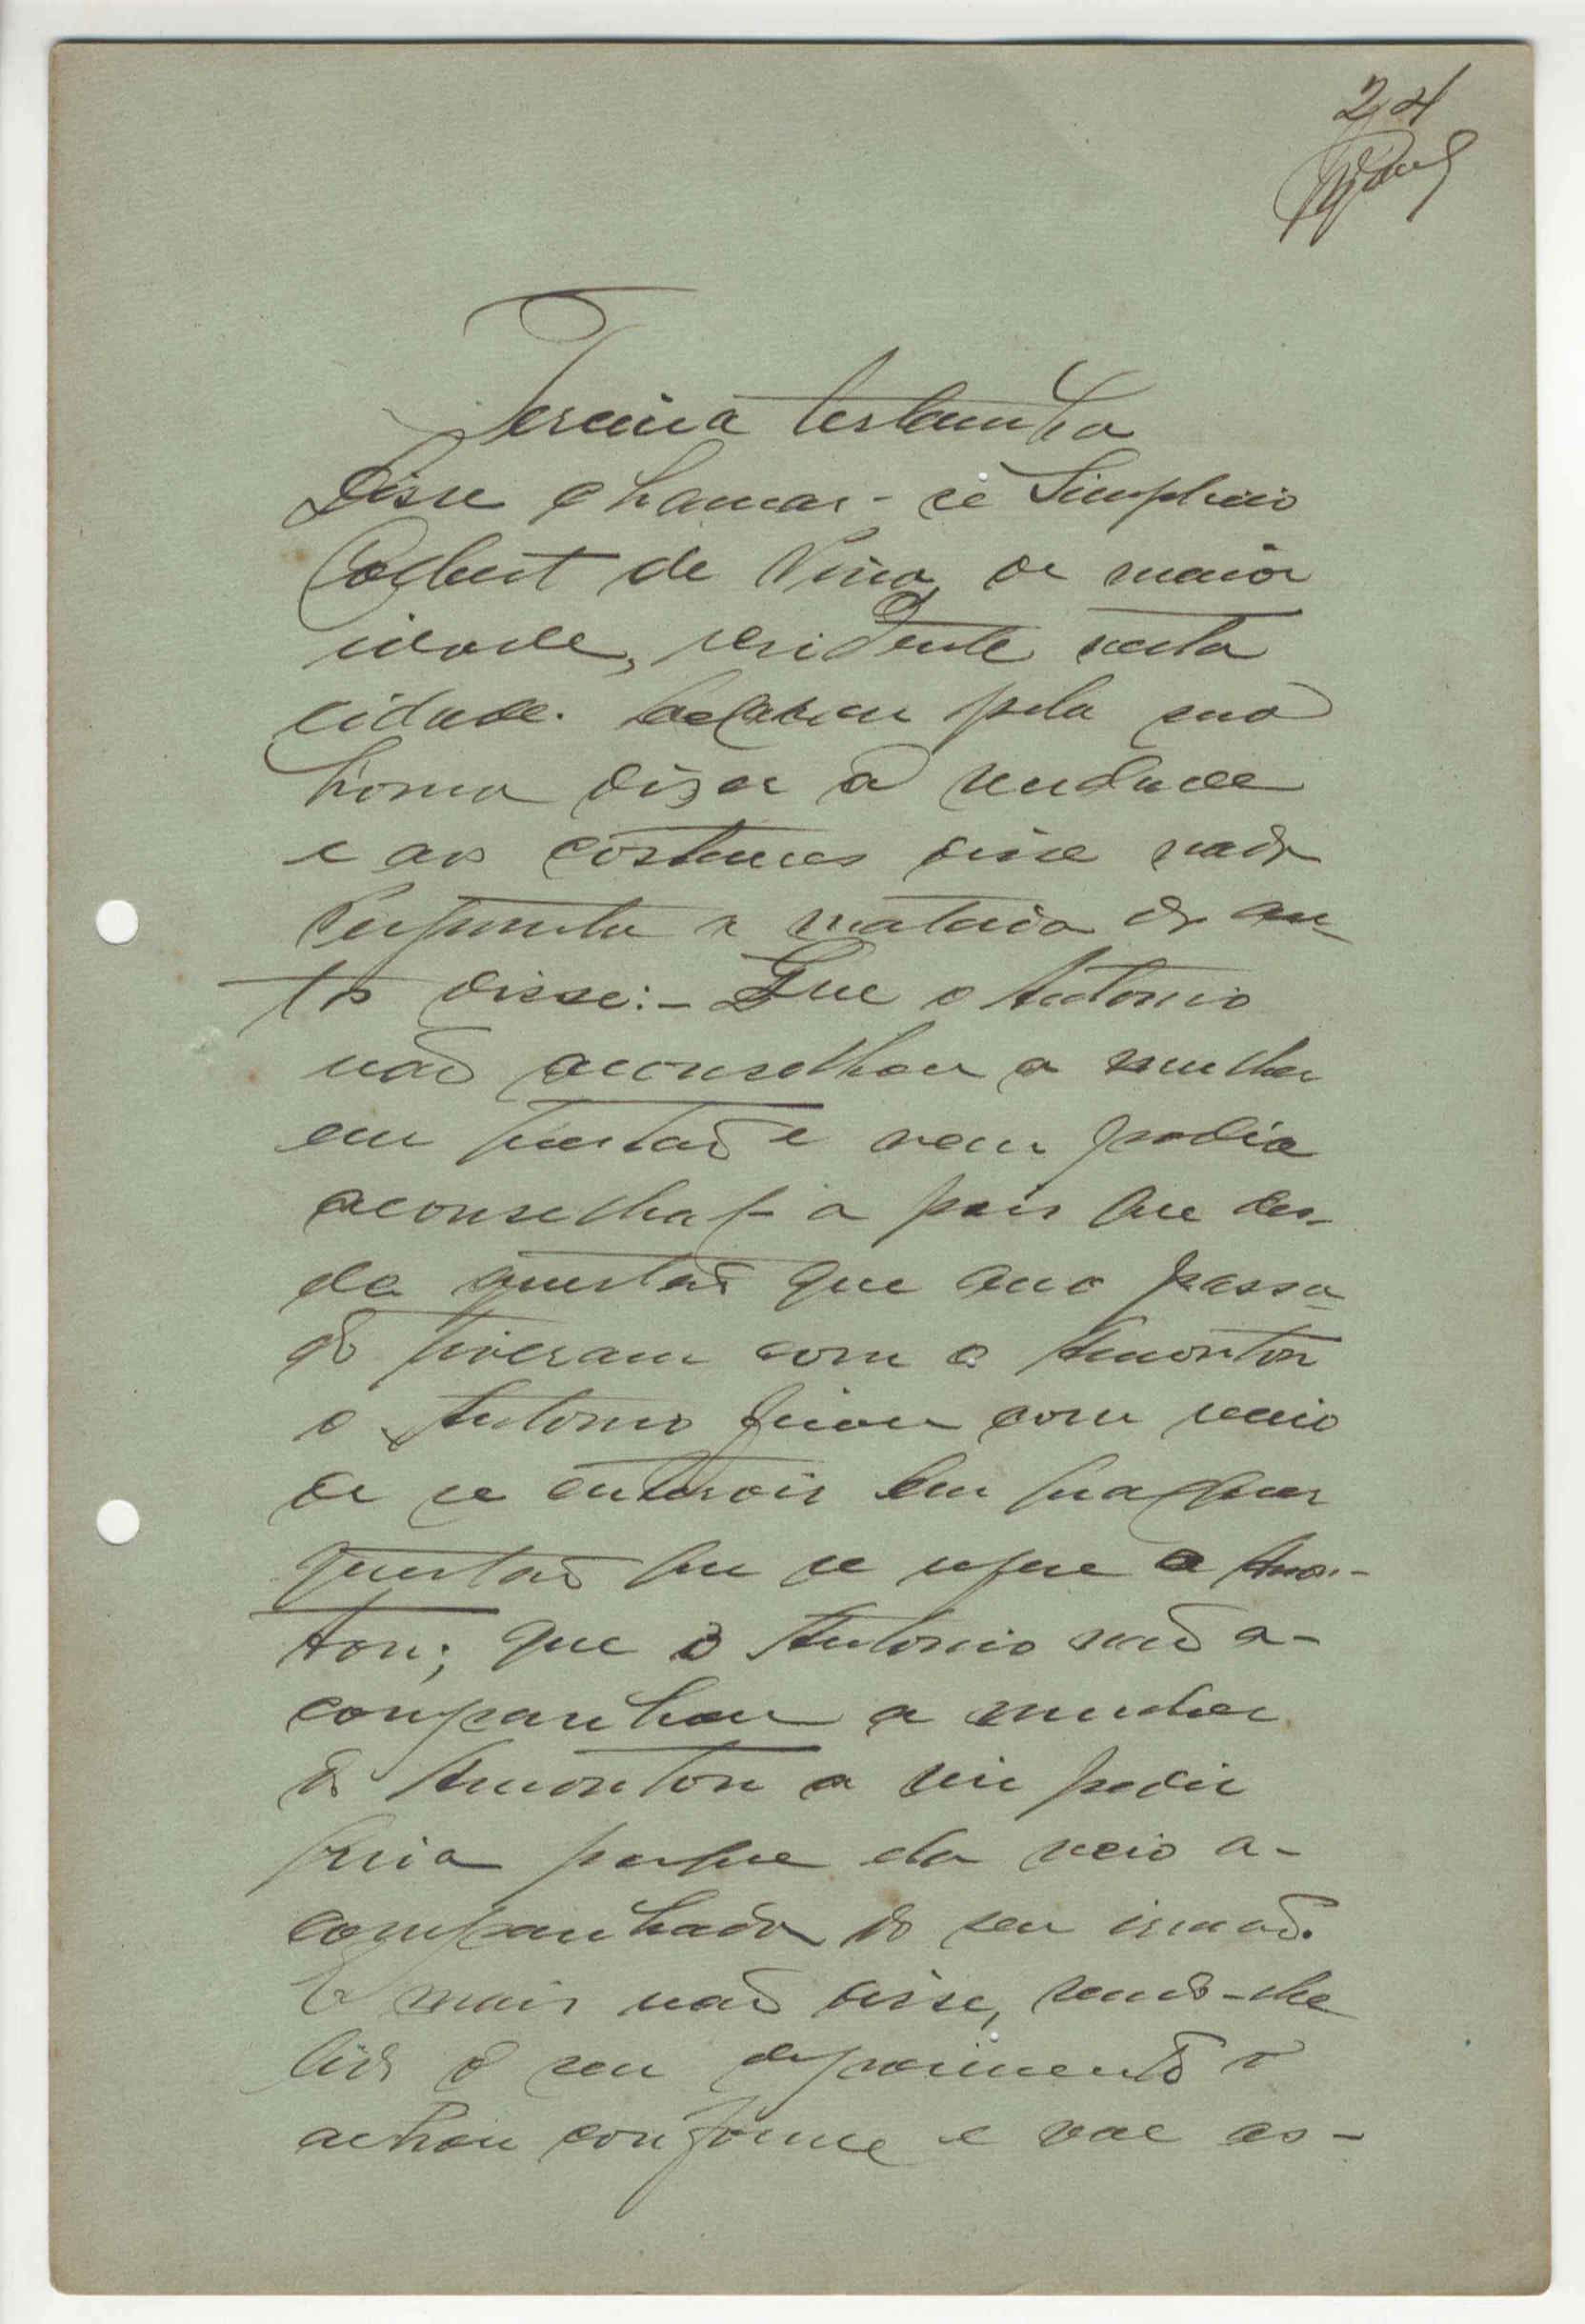 24
Terceira testemunha
Disse chamar-se Simplicio
de Viva, de maior
idade, residente nesta
cidade. Declarou pela sua
honra dizer a verdade
e aos costumes disse nada
Perguntu a materia do au-
to disse:- Que o Antonio
não aconselhou a mulher
em questão e nem podia
aconselhal-a pois que des-
da questão que ano passa-
do tiveram com o Amonton
o Antonio ficou com receio
de se em qualquer
questão que se refere a Amon-
ton; que o Antonio não a-
companhou a mulher
do Amonton a vir pedir
porque ela veio a-
companhada do seu irmão.
E mais não disse, sendo-lhe
lido o seu depoimento o
achou conforme e vae as-